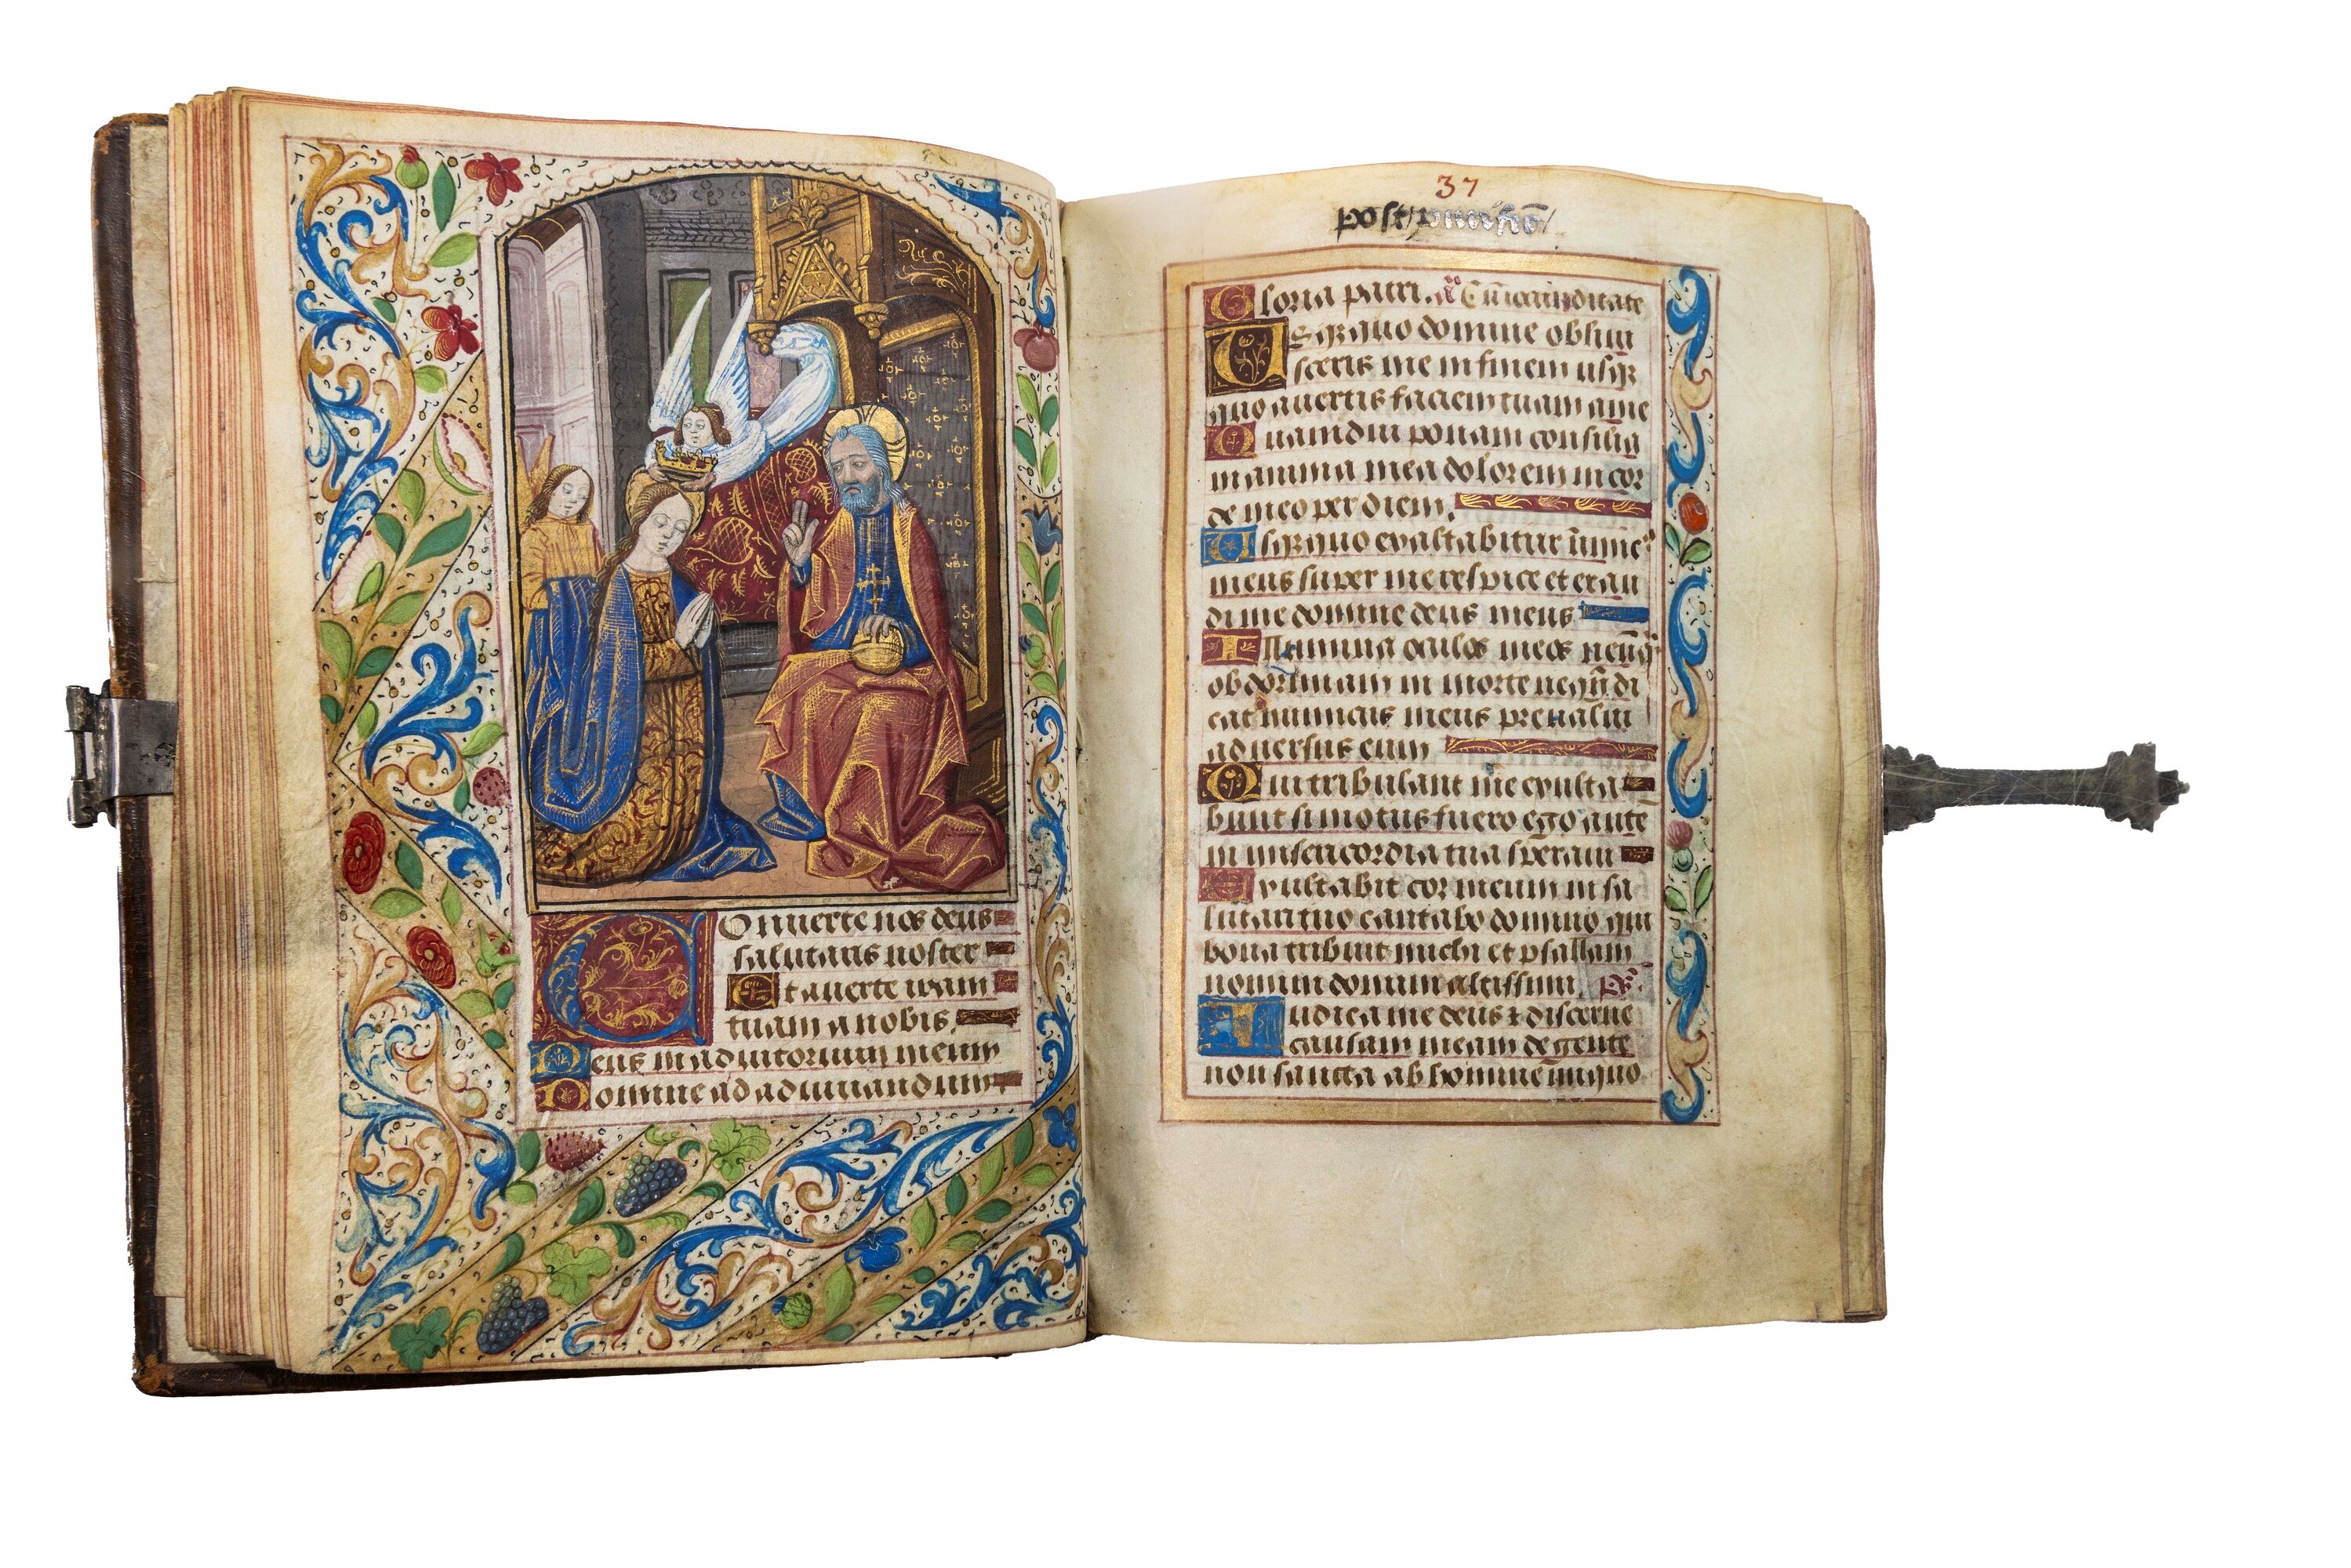 Conuerte nos deus
salutaris noster
Et auerte iram
tuam a nobis.
Deus in adiutorium meum
Domine ad adiuuandum
37
post
Gloria patri. Cū iocunditate
Usq̄quo domine obliui
sceris me in finem usq̄
quo auertis faciem tuam a me
Quamdiu ponam consilia
in anima mea dolorem in cor
de meo per diem.
Usq̄quo exaltabitur inimic⁹
meus super me respice et exau
di me domine deus meus
Illumina oculos meos
obdormiam in morte neqn̄ di
cat inimicus meus preualui
aduersus eum
Qui tribulant me exulta
bunt si motus fuero ego autē
in misericordia tua speraui
Exultabit cor meum in sa
lutari tuo cantabo domino qui
bona tribuit michi et psallam
nomini domini altissimi. Ps.
Iudica me deus & discerne
causam meam de gente
non sancta ab homine iniquo